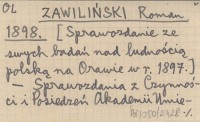 OL
ZAWILIŃSKI Roman
1898. [Sprawozdanie ze
swych badań nad ludnością
polską na Orawie w r. 1897.]
— Sprawozdania z Czynnoś-
ci i Posiedzeń Akademii Umie-